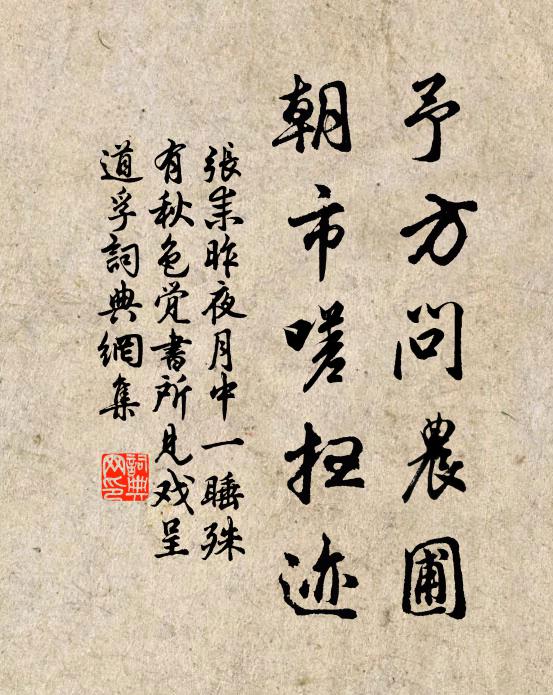 予方问農圃
朝市嗟扫迹
張耒昨夜月中一睡殊
有秋色觉書所見戏呈
道孚詞典網集
詞典网印